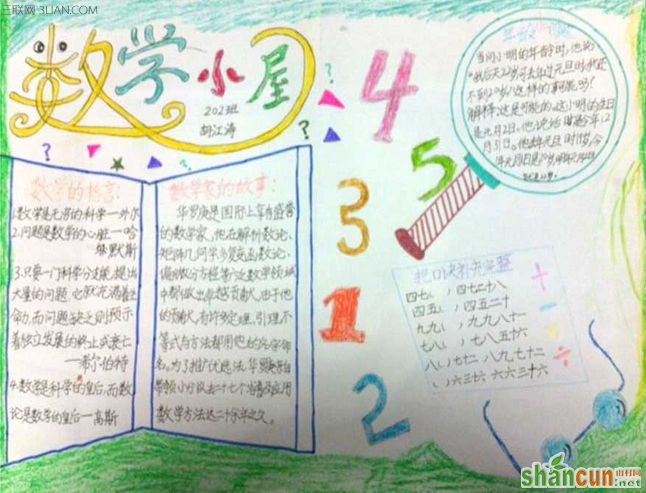 三联网 3LIAN.COM
数学小屋
202班
胡江涛
数学的格言:
1.数学是无穷的科学一外尔
2.问题是数学的心脏一哈
摩斯
3.只要一门科学分支能提出
大量的问题,它就充满着生
命力,而问题缺乏则预示
着独立发展的终止或衰亡
一希尔伯特
4.数学是科学的皇后,而数
论是数学的皇后一高斯
数学家的故事:
华罗庚是国际上享有盛誉
的数学家,他在解析数论、
矩阵几何学、多复变函数论、
偏微分方程等广泛数学领域
中都做出卓越贡献,由于他
的贡献,有许多定理、引理、不
等式与方法都用他的名字命
名。为了推广优选法,华罗庚
数学方法达二十余年之久。
4
5
3
1
2
当问小明的年龄时,他说
"我后天22岁,可去年过元旦时,我还
不到20岁"这样的事可能吗?
解释:这是可能的,这小明的生日
是元月2日。
把口诀补充完整
四七( )四七二十八
四五( )四五二十
九九( )九九八十一
七八( )七八五十六
( )八七十二 八九七十二
( )六三十六 六六三十六
+
−
×
÷
shancun
山村网
.net